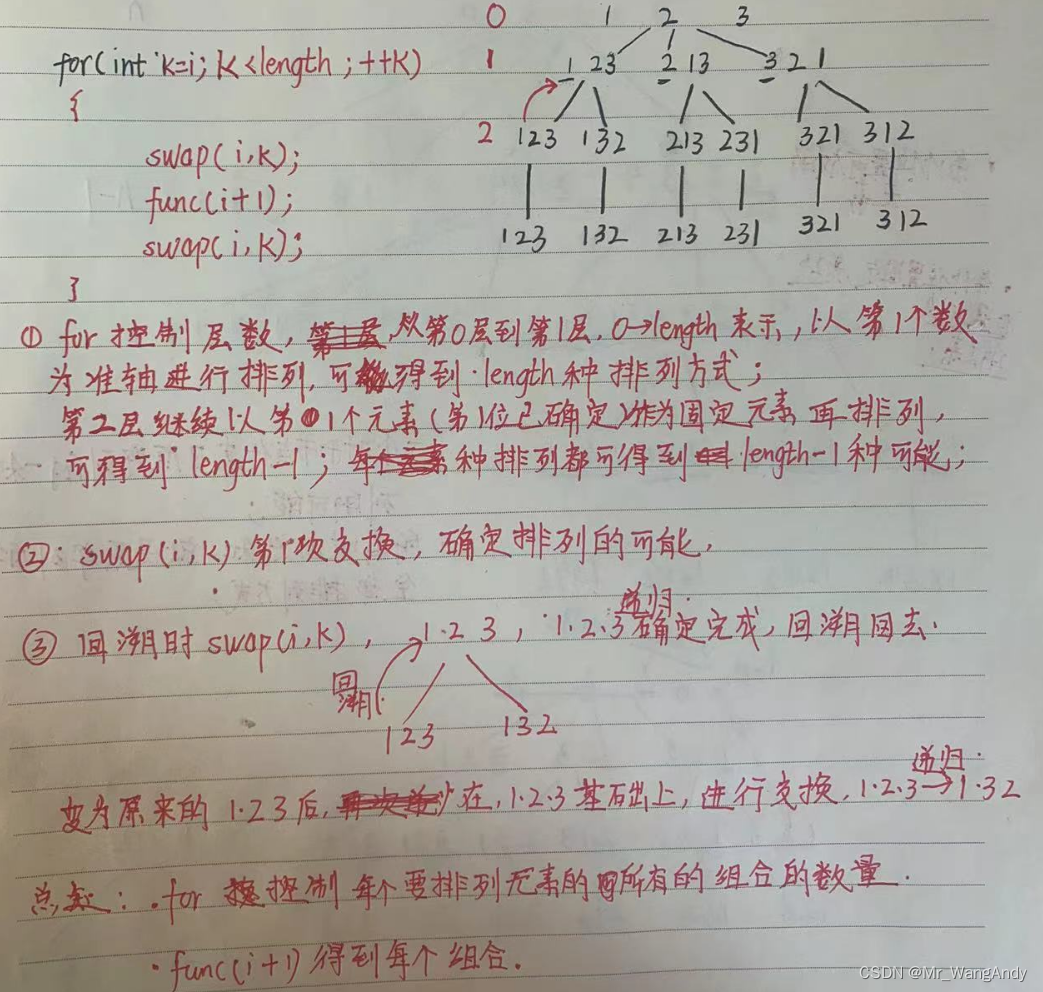 0 1 2 3
for(int k=i; k<length; ++k)
1 1 23 2 13 3 21
{
2 123 132 213 231 321 312
swap(i,k);
func(i+1);
123 132 213 231 321 312
swap(i,k);
}
① for 控制层数, 从第0层到第1层, 0→length 表示, 以第1个数
为准轴进行排列, 可得到 length 种排列方式;
第2层继续以第1个元素(第1位已确定)作为固定元素再排列,
可得到 length-1; 种排列都可得到 length-1 种可能;
②: swap(i,k) 第1次交换, 确定排列的可能,
递归:
③ 回溯时 swap(i,k), 1·2 3, 1·2·3 确定完成, 回溯回去.
回溯
123 132
递归:
变为原来的 1·2 3 后, 在, 1·2·3 基础上, 进行交换, 1·2·3→1·32
总结: ·for 控制每个要排列元素的所有的组合的数量.
·func(i+1) 得到每个组合.
CSDN @Mr_WangAndy